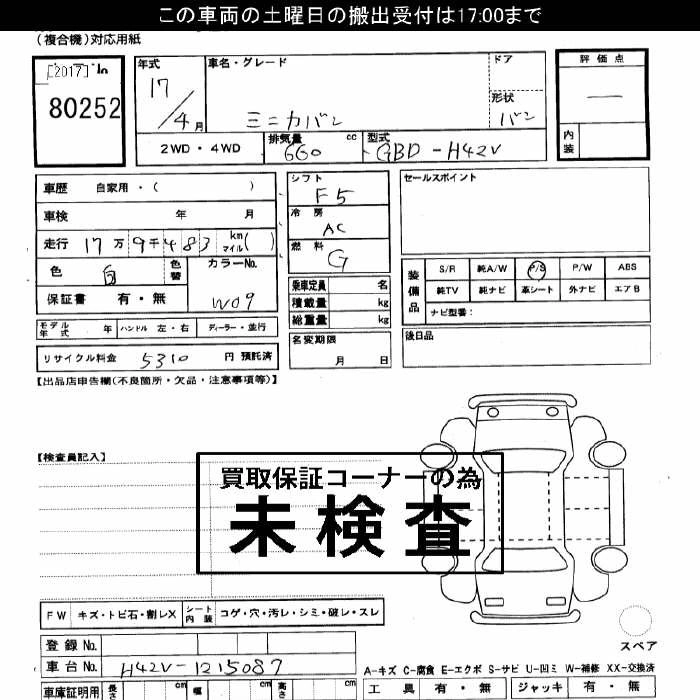 この車両の土曜日の搬出受付は17:00まで
(複合機)対応用紙
[2017] 10
80252
年式
17/4月
車名・グレード
ミニカバン
ドア
形状
バン
評価点
—
内装
2WD・4WD
排気量
660 cc
型式
GBD-H42V
車歴 自家用・( )
車検 年 月
走行 17万9千483 km マイル( )
色 白 色替
カラーNo.
W09
保証書 有・無
モデル年式 年 ハンドル 左・右 ディーラー・並行
リサイクル料金 5310 円 預託済
シフト
F5
冷房
AC
燃料
G
乗車定員 名
積載量 kg
総重量 kg
名変期限
月 日
セールスポイント
装備品
S/R 純A/W P/S P/W ABS
純TV 純ナビ 革シート 外ナビ エアB
ナビ型番：
後日品
【出品店申告欄(不良箇所・欠品・注意事項等)】
【検査員記入】
買取保証コーナーの為
未検査
FW キズ・トビ石・割レX シート内装 コゲ・穴・汚レ・シミ・破レ・スレ
登録No.
車台No. H42V-1215087
車庫証明用 長さ cm 幅 cm 高さ cm
スペア
A-キズ C-腐食 E-エクボ S-サビ U-凹ミ W-補修 XX-交換済
工具 有・無 ジャッキ 有・無